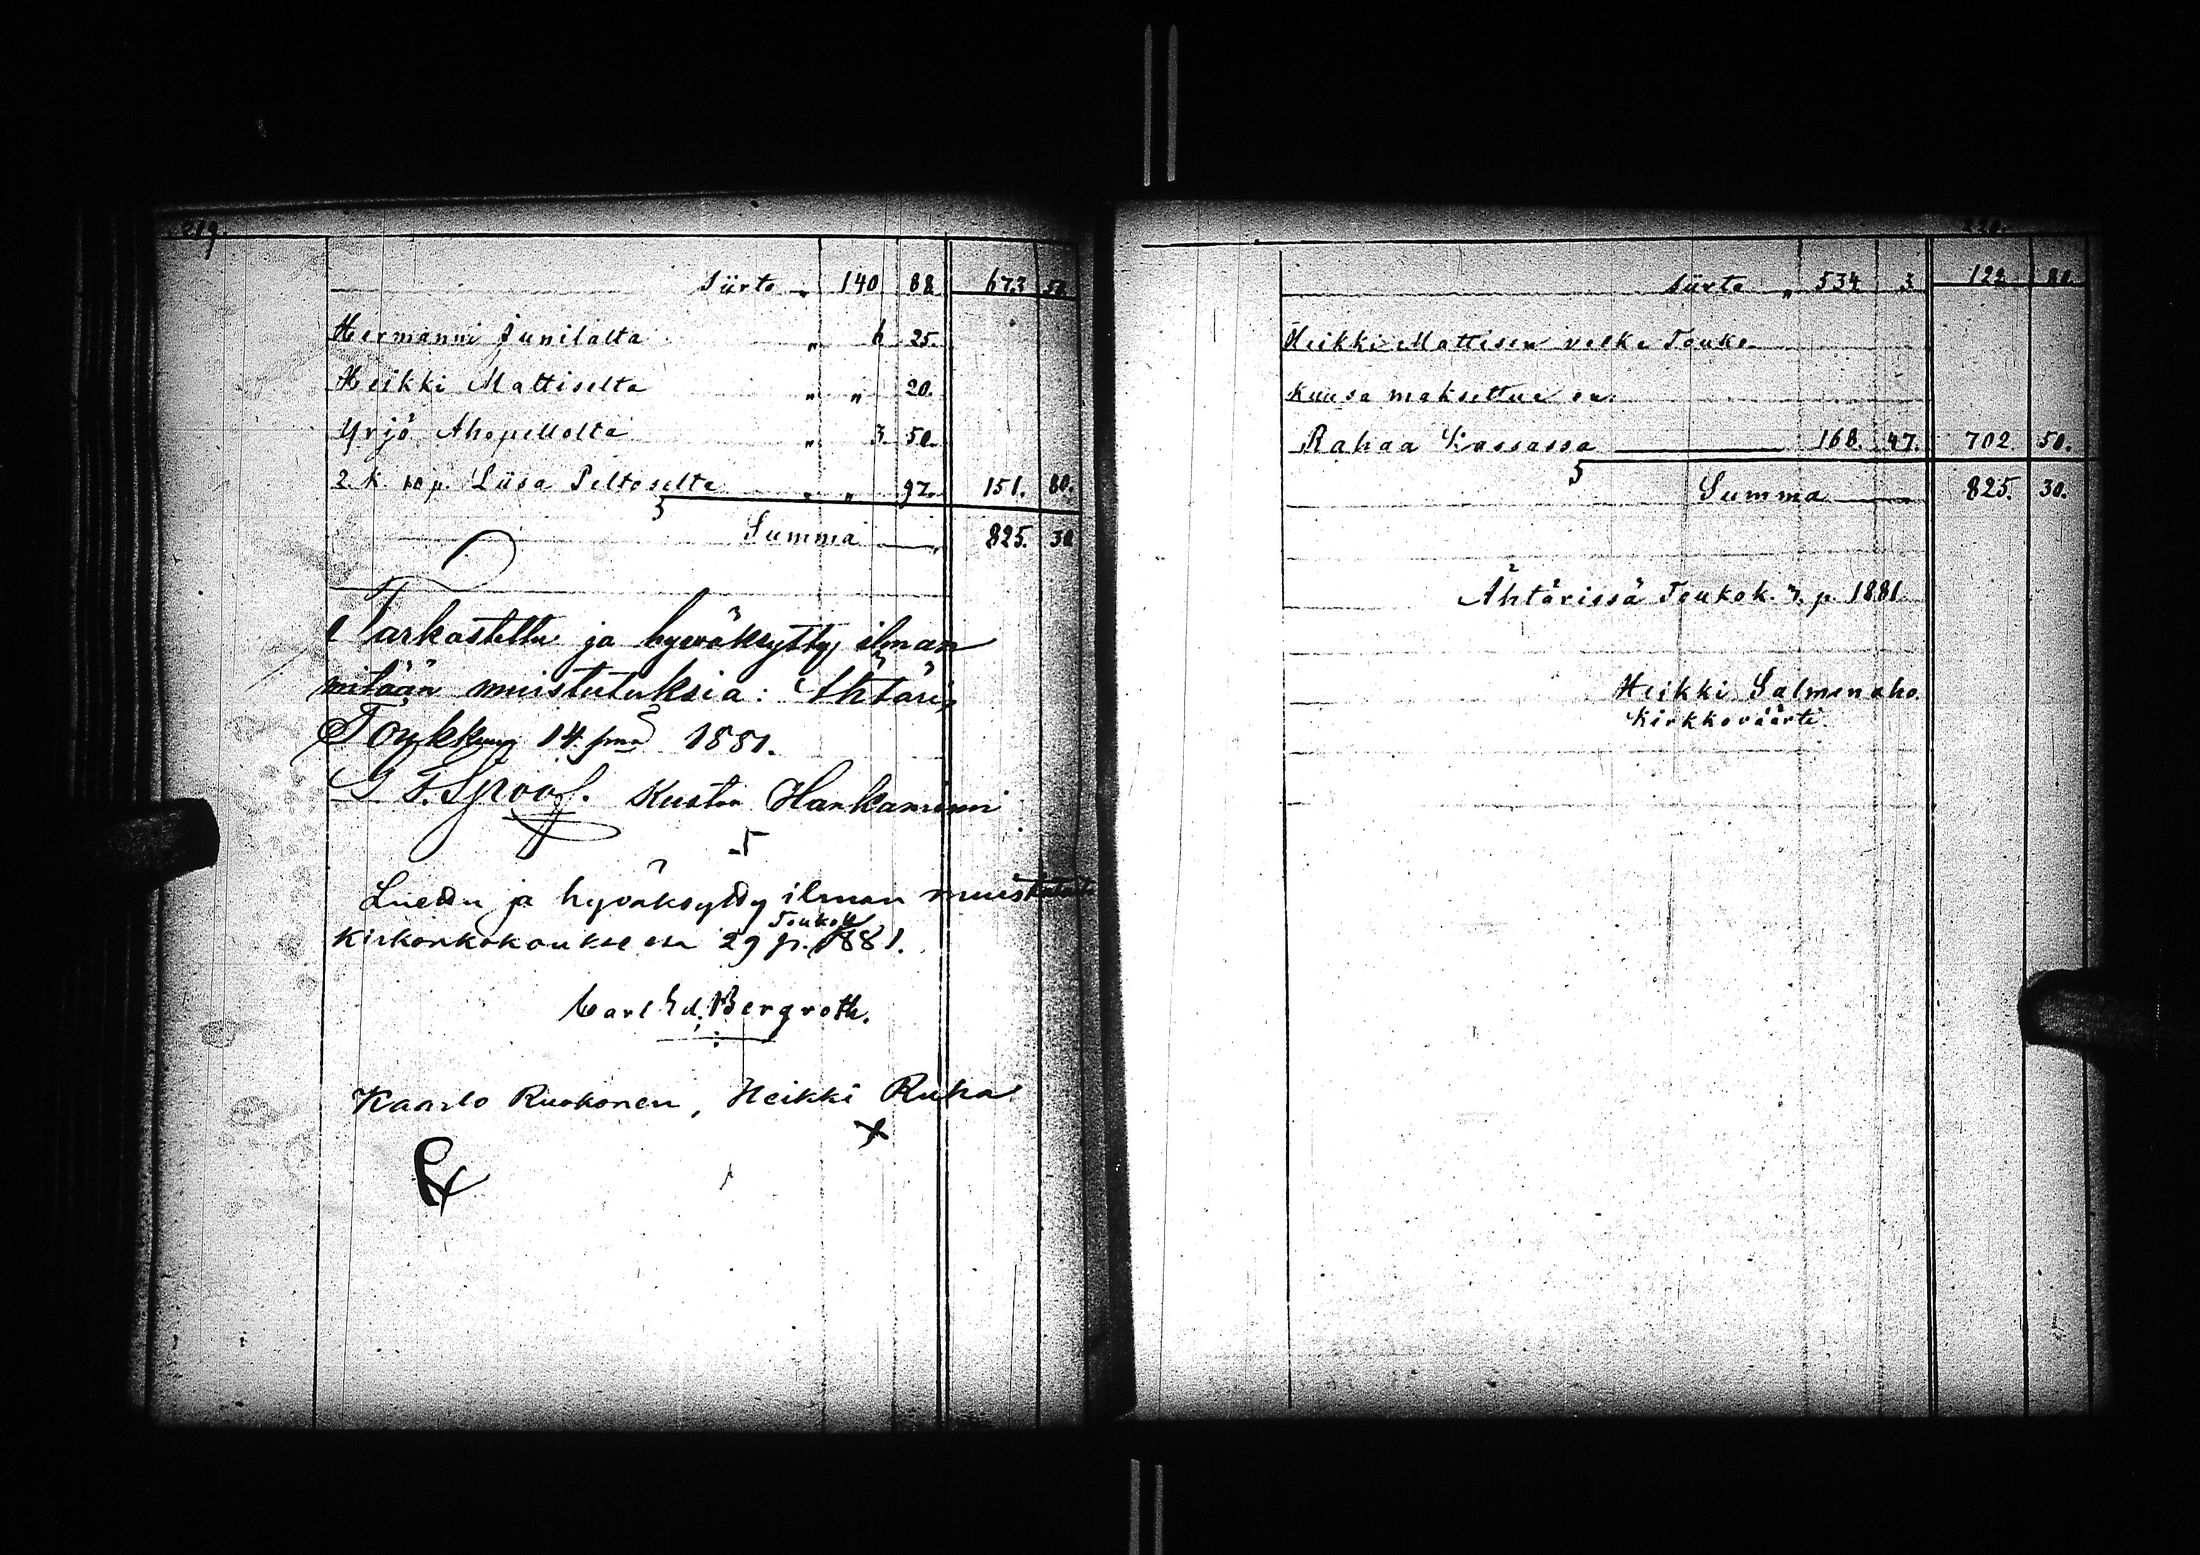 219.
Siirto „ 140 88 673 50
Hermanni Junilalta „ 6 25.
Heikki Mattiselta „ „ 20.
Yrjö Ahopellolta „ 3. 50.
2. k. 10 p. Liisa Peltoselta „ „ 97. 151. 80.
Summa 825. 30
Tarkastettu ja hyväksytty ilman
mitään muistutuksia: Ähtäri,
Toukkuu 14 pnä 1881.
G F. Spoof. Kustaa Hankaniemi
Luettu ja hyväksytty ilman
Toukok
Kirkonkokouksessa 29 p. 1881.
Carl Ed. Bergroth.
Kaarlo Ruokonen, Heikki Ruha
220.
Siirto „ 534 3 122 80.
Heikki Mattisen velka Touko
kuusa maksettua on
Rahaa Kassassa 168. 47. 702 50.
Summa 825. 30.
Ähtärissä Toukok. 7. p. 1881
Heikki Salmenaho.
Kirkkoväärti.